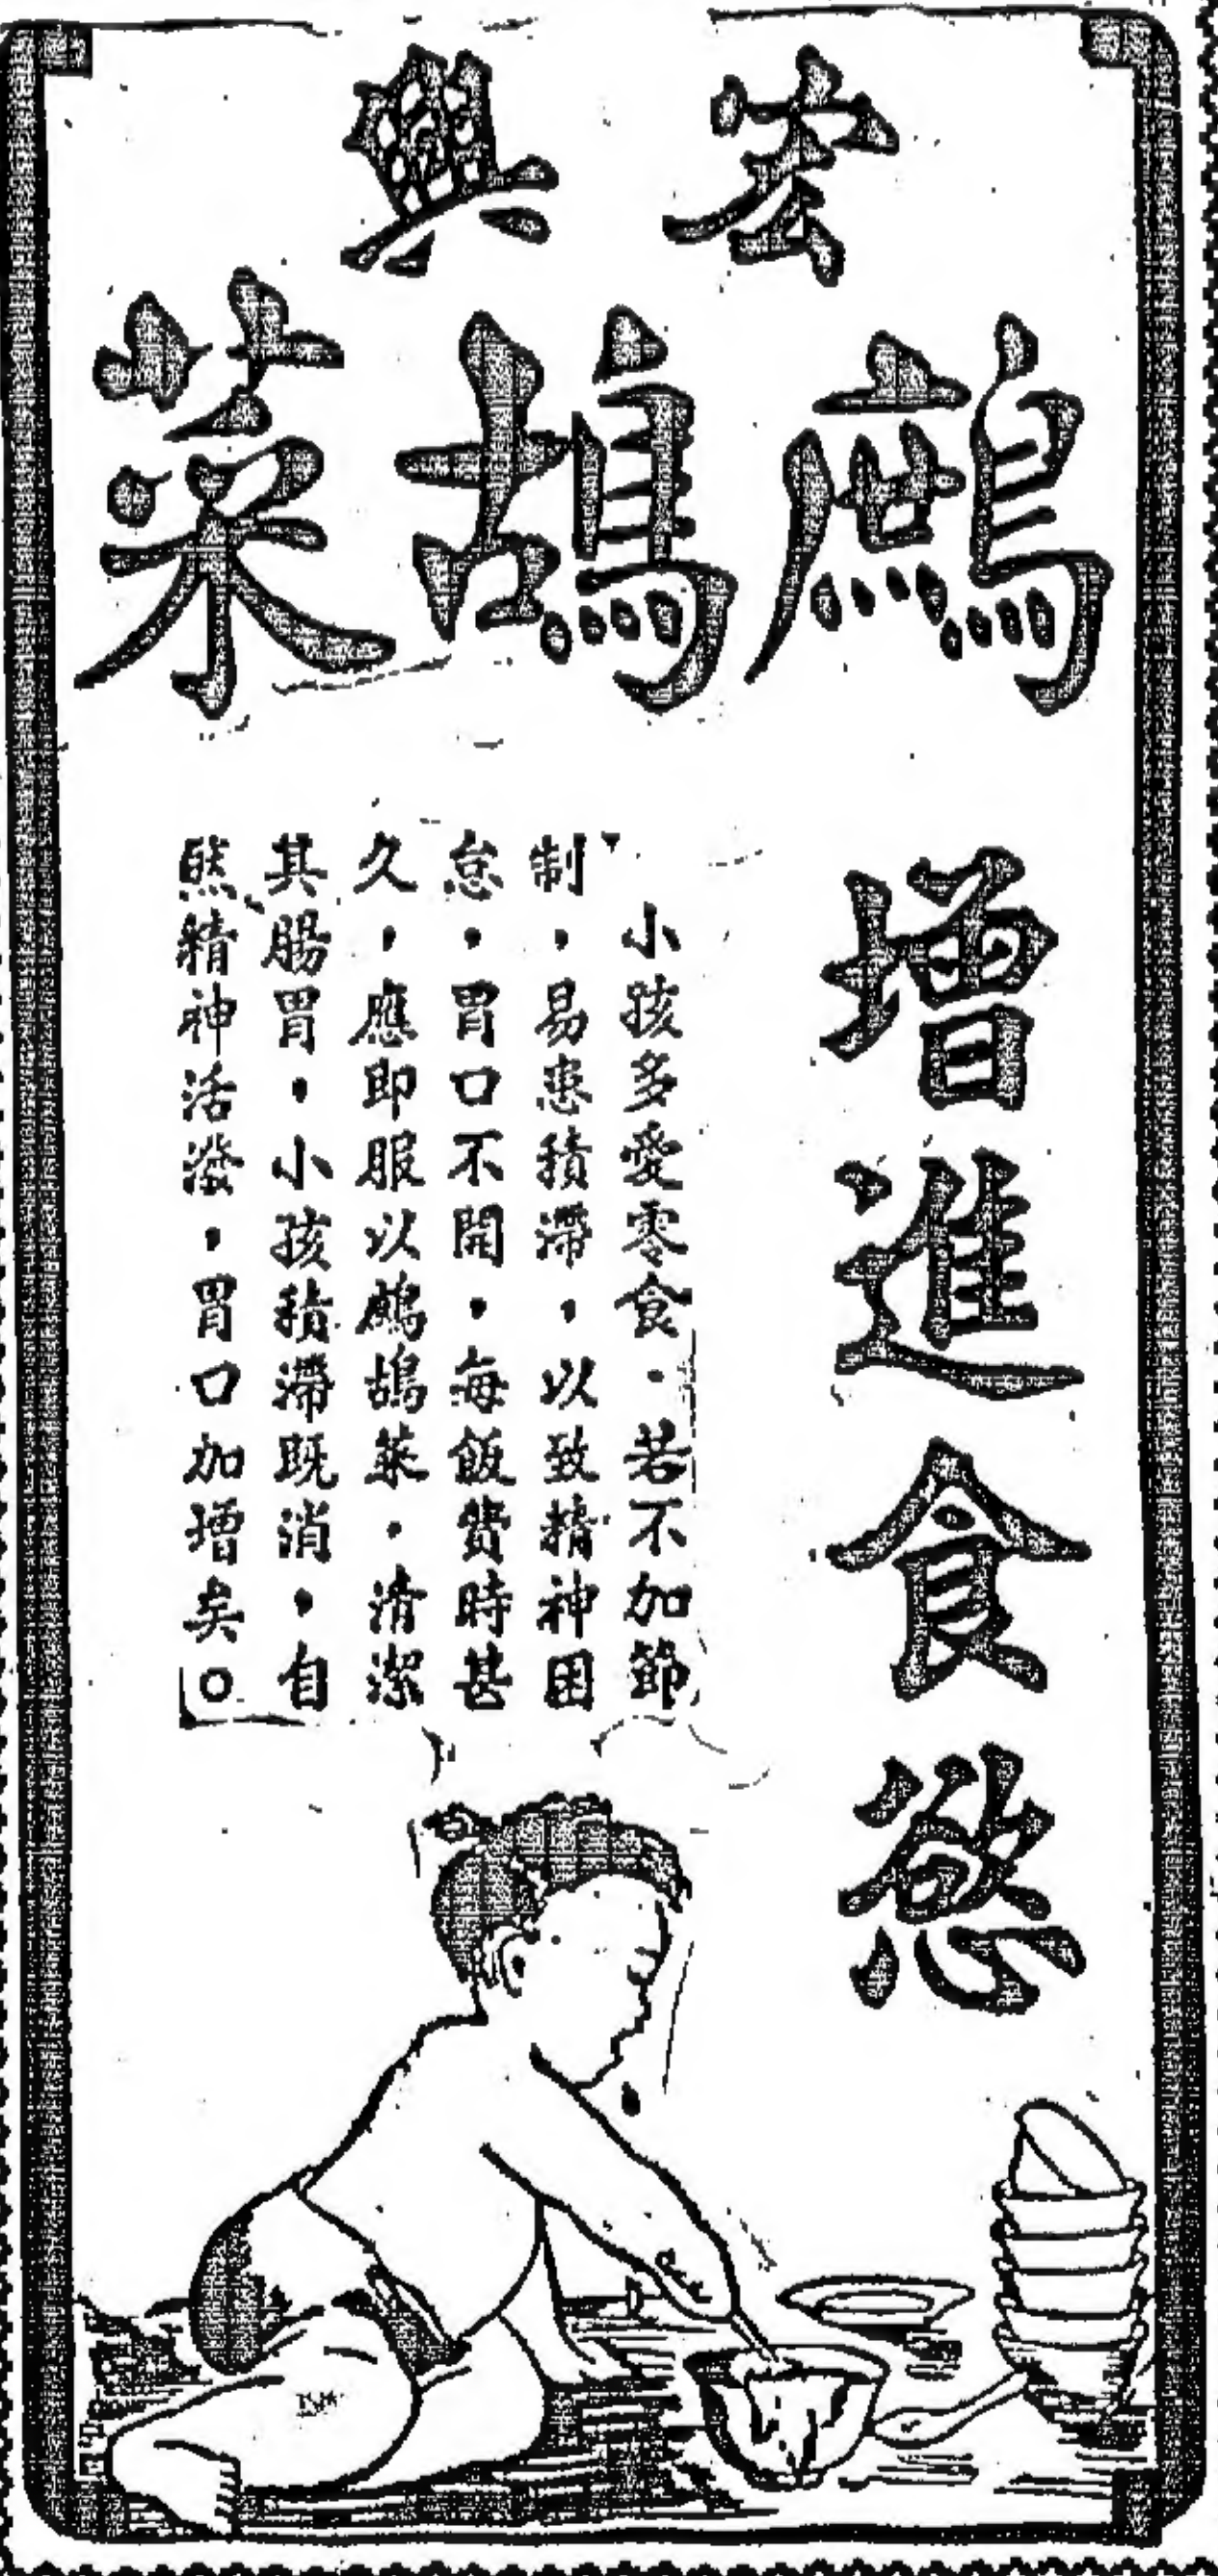 宏興
鷓鴣菜
增進食慾
小孩多愛零食．若不加節
制，易患積滯，以致精神困
怠，胃口不開，每飯費時甚
久，應即服以鷓鴣菜．清潔
其腸胃，小孩積滯既消，自
然精神活潑，胃口加增矣○